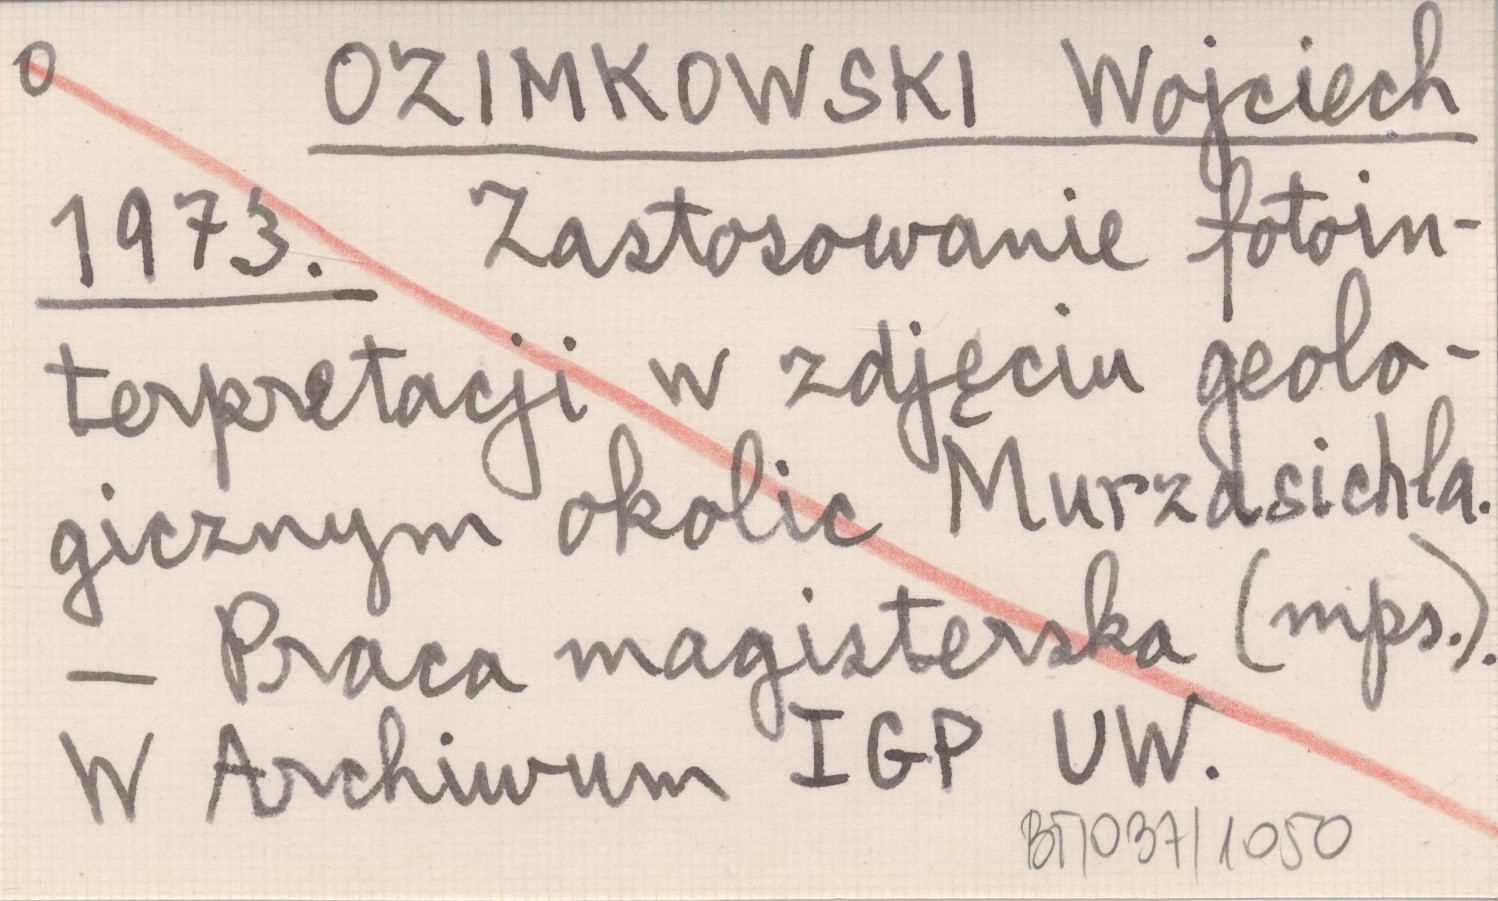 O OZIMKOWSKI Wojciech
1973. Zastosowanie fotoin-
terpretacji w zdjęciu geolo-
gicznym okolic Murzasichla.
— Praca magisterska (mps.).
W Archiwum IGP UW.
BT/037/1050